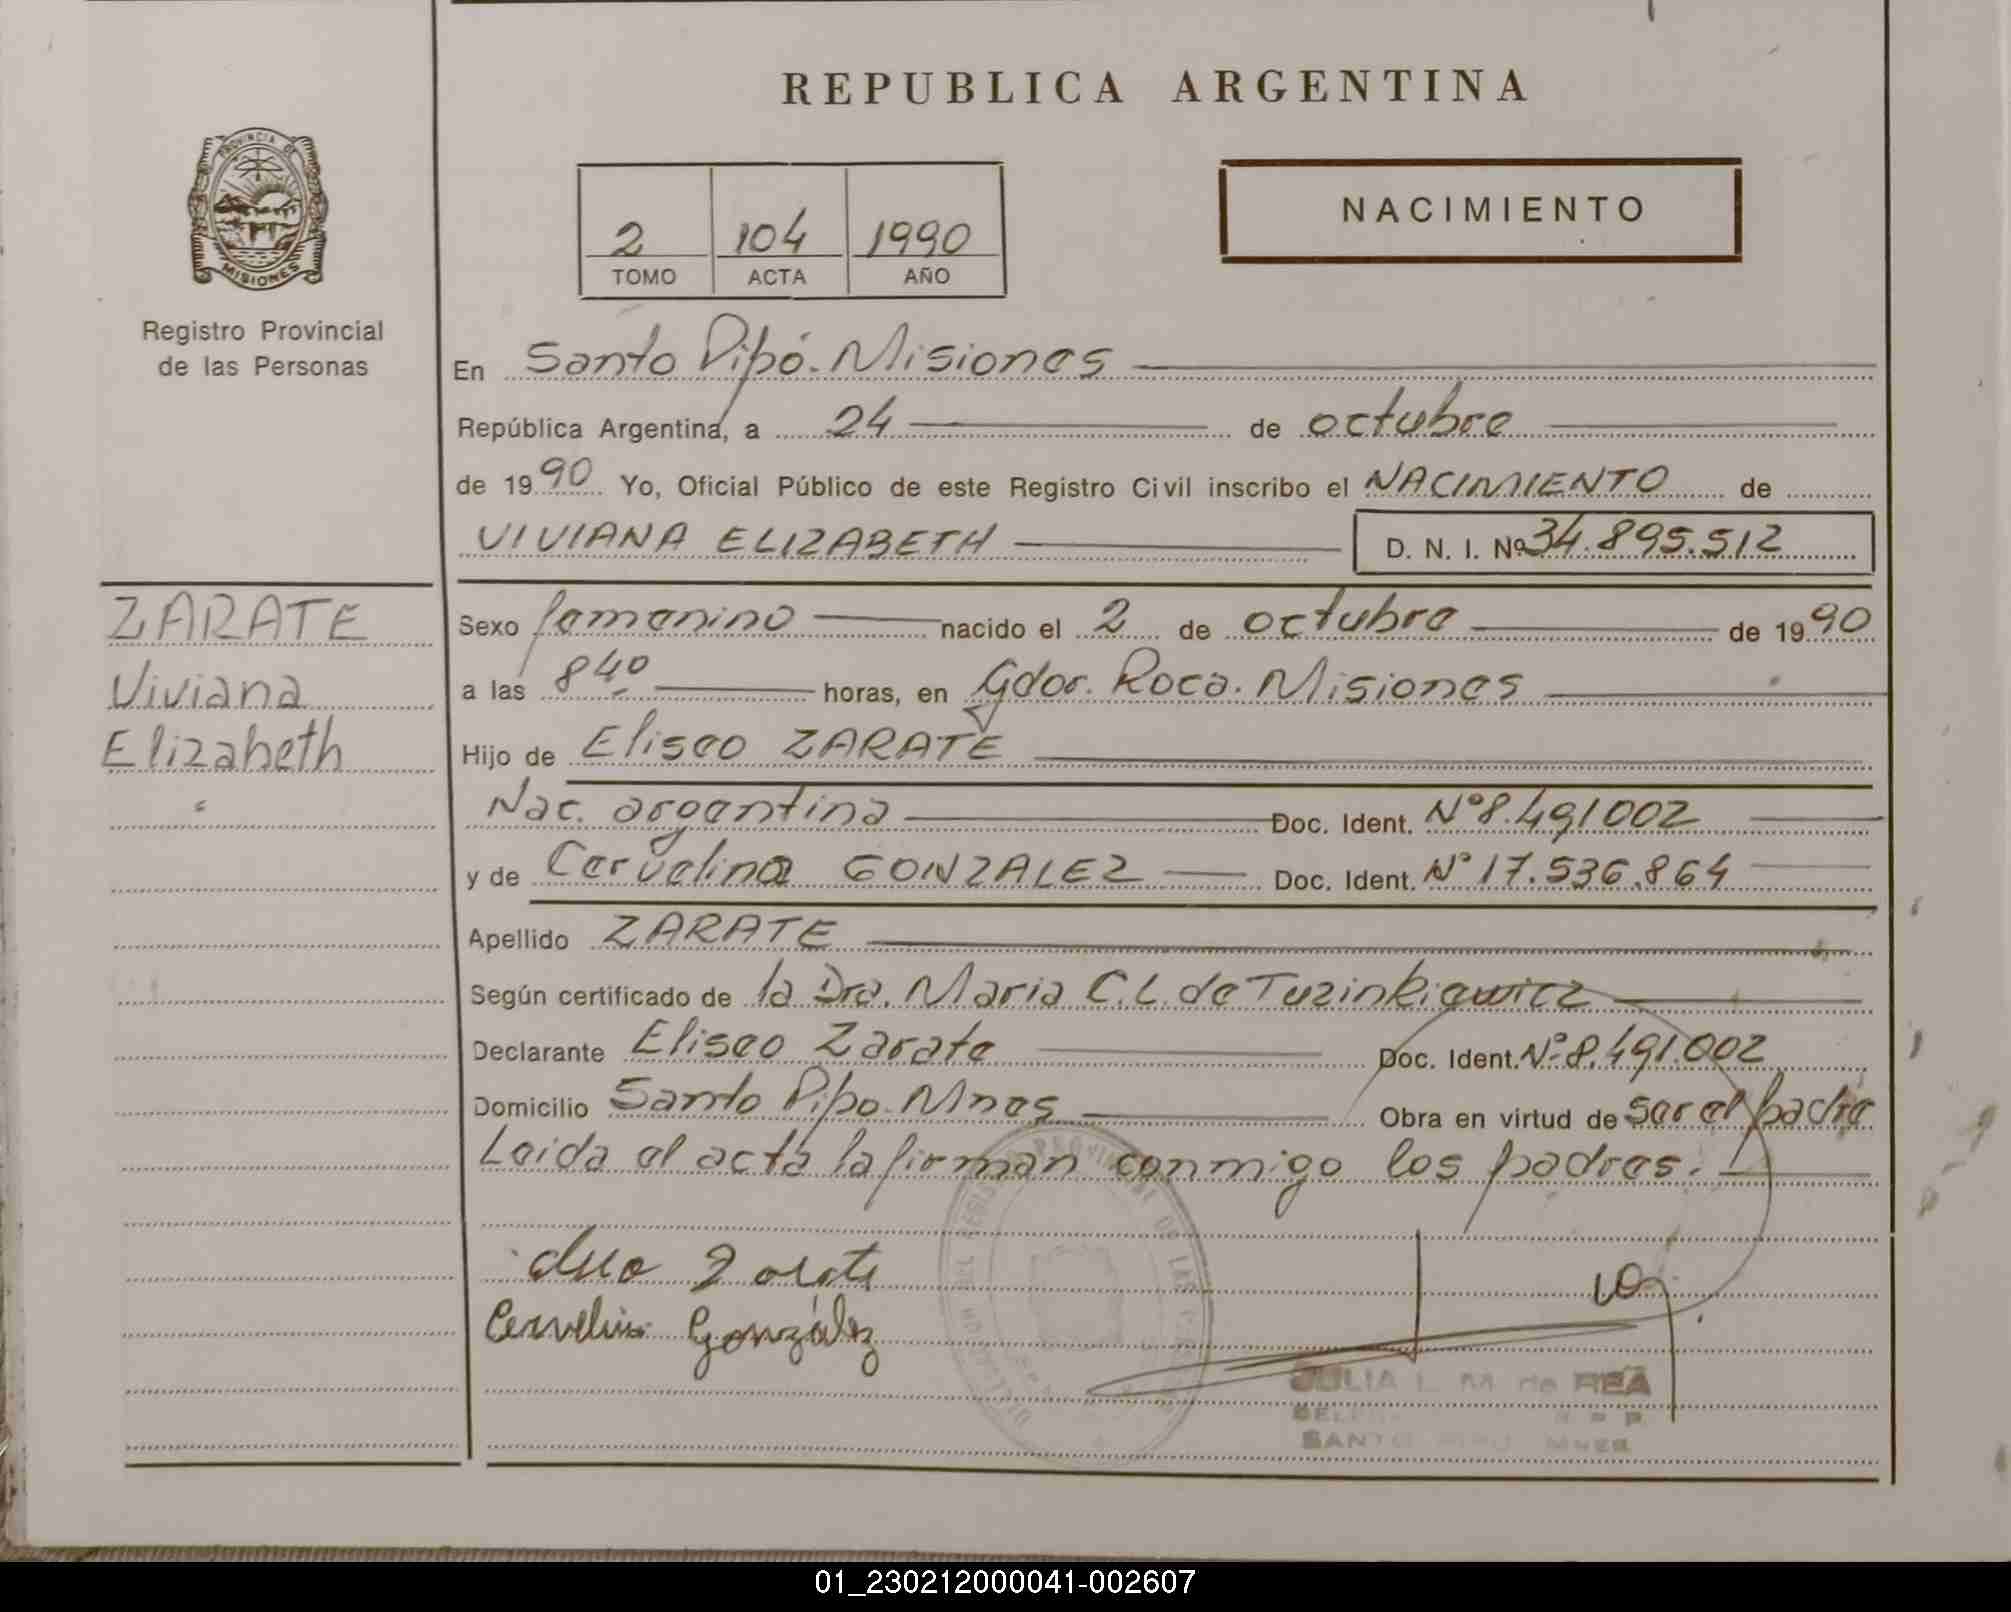 REPUBLICA ARGENTINA
PROVINCIA DE
MISIONES
Registro Provincial
de las Personas
2 104 1990
TOMO ACTA AÑO
NACIMIENTO
En Santo Pipó. Misiones
República Argentina, a 24 de octubre
de 1990 Yo, Oficial Público de este Registro Civil inscribo el NACIMIENTO de
VIVIANA ELIZABETH D. N. I. Nº 34.895.512
ZARATE
Viviana
Elizabeth
Sexo femenino nacido el 2 de octubre de 1990
a las 8 40 horas, en Gdor. Roca. Misiones
Hijo de Eliseo ZARATE
Nac. argentina Doc. Ident. Nº 8.491002
y de Cervelina GONZALEZ Doc. Ident. Nº 17.536.864
Apellido ZARATE
Según certificado de la Dra. Maria C. L. de Tuzinkiewicz
Declarante Eliseo Zarate Doc. Ident. Nº 8.491.002
Domicilio Santo Pipo. Mnes Obra en virtud de ser el padre
Leida el acta la firman conmigo los padres.
Zarate
González
JULIA L. M. de REA
SANTO PIPO MNES
01_230212000041-002607